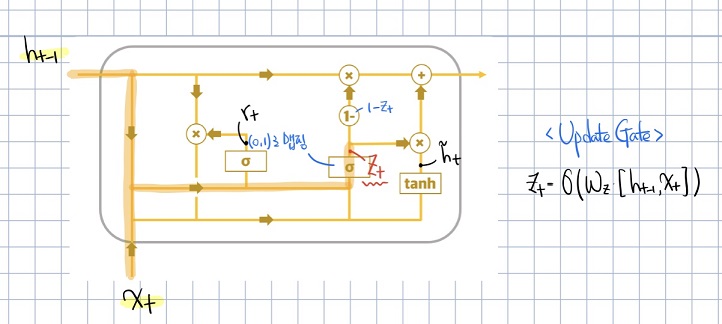 h_{t-1}
×
+
1-
1-z_t
r_t
×
(0,1)로 맵핑
σ
σ
z_t
×
h̃_t
tanh
x_t
<Update Gate>
z_t = σ(W_z·[h_{t-1}, x_t])